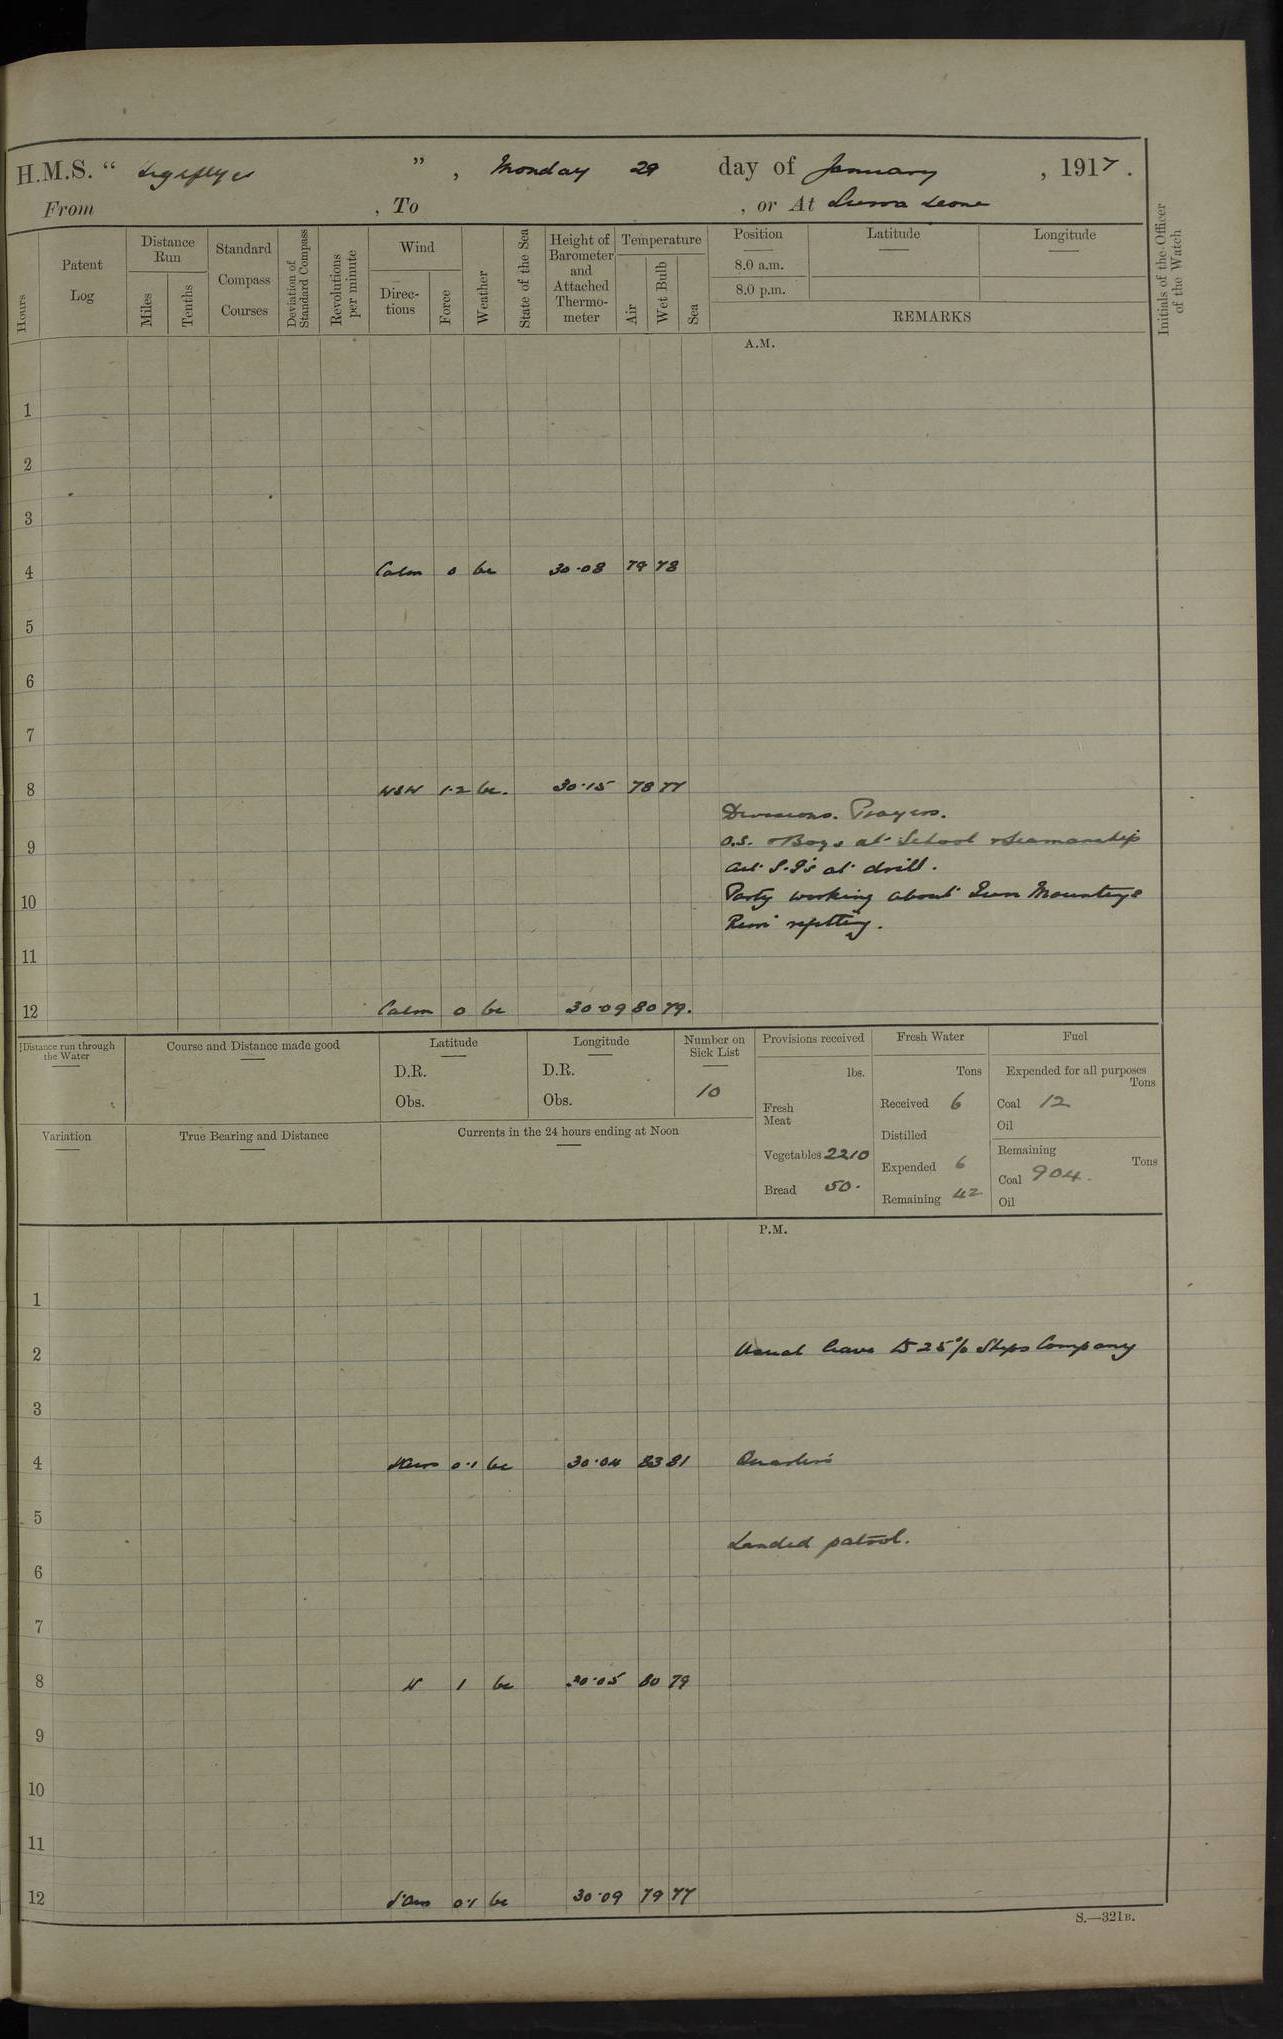 H.M.S. " Highflyer ", Monday 29 day of January, 1917.
From , To , or At Sierra Leone
Hours
Patent Log
Distance Run
Miles
Tenths
Standard Compass Courses
Deviation of Standard Compass
Revolutions per minute
Wind
Directions
Force
Weather
State of the Sea
Height of Barometer and Attached Thermometer
Temperature
Air
Wet Bulb
Sea
Position
8.0 a.m.
8.0 p.m.
Latitude
Longitude
REMARKS
Initials of the Officer of the Watch
A.M.
1
2
3
4 Calm 0 bc 30.08 79 78
5
6
7
8 WSW 1.2 bc. 30.15 78 77
Divisions. Prayers.
9 O.S. & Boys at School & Seamanship
at drill.
10 Party working about Gun Mountings
refitting.
11
12 Calm 0 bc 30.09 80 79.
Distance run through the Water
Course and Distance made good
Latitude
D.R.
Obs.
Longitude
D.R.
Obs.
Number on Sick List
10
Provisions received
lbs.
Fresh Meat
Vegetables 2210
Bread 50.
Fresh Water
Tons
Received 6
Distilled
Expended 6
Remaining 42
Fuel
Expended for all purposes
Tons
Coal 12
Oil
Remaining
Tons
Coal 904.
Oil
Variation
True Bearing and Distance
Currents in the 24 hours ending at Noon
P.M.
1
2 Usual leave to 25% Ships Company
3
4 0.1 bc 30.04 83 81 Quarters
5
Landed patrol.
6
7
8 N 1 bc 30.05 80 79
9
10
11
12 0.1 bc 30.09 79 77
S.—321B.